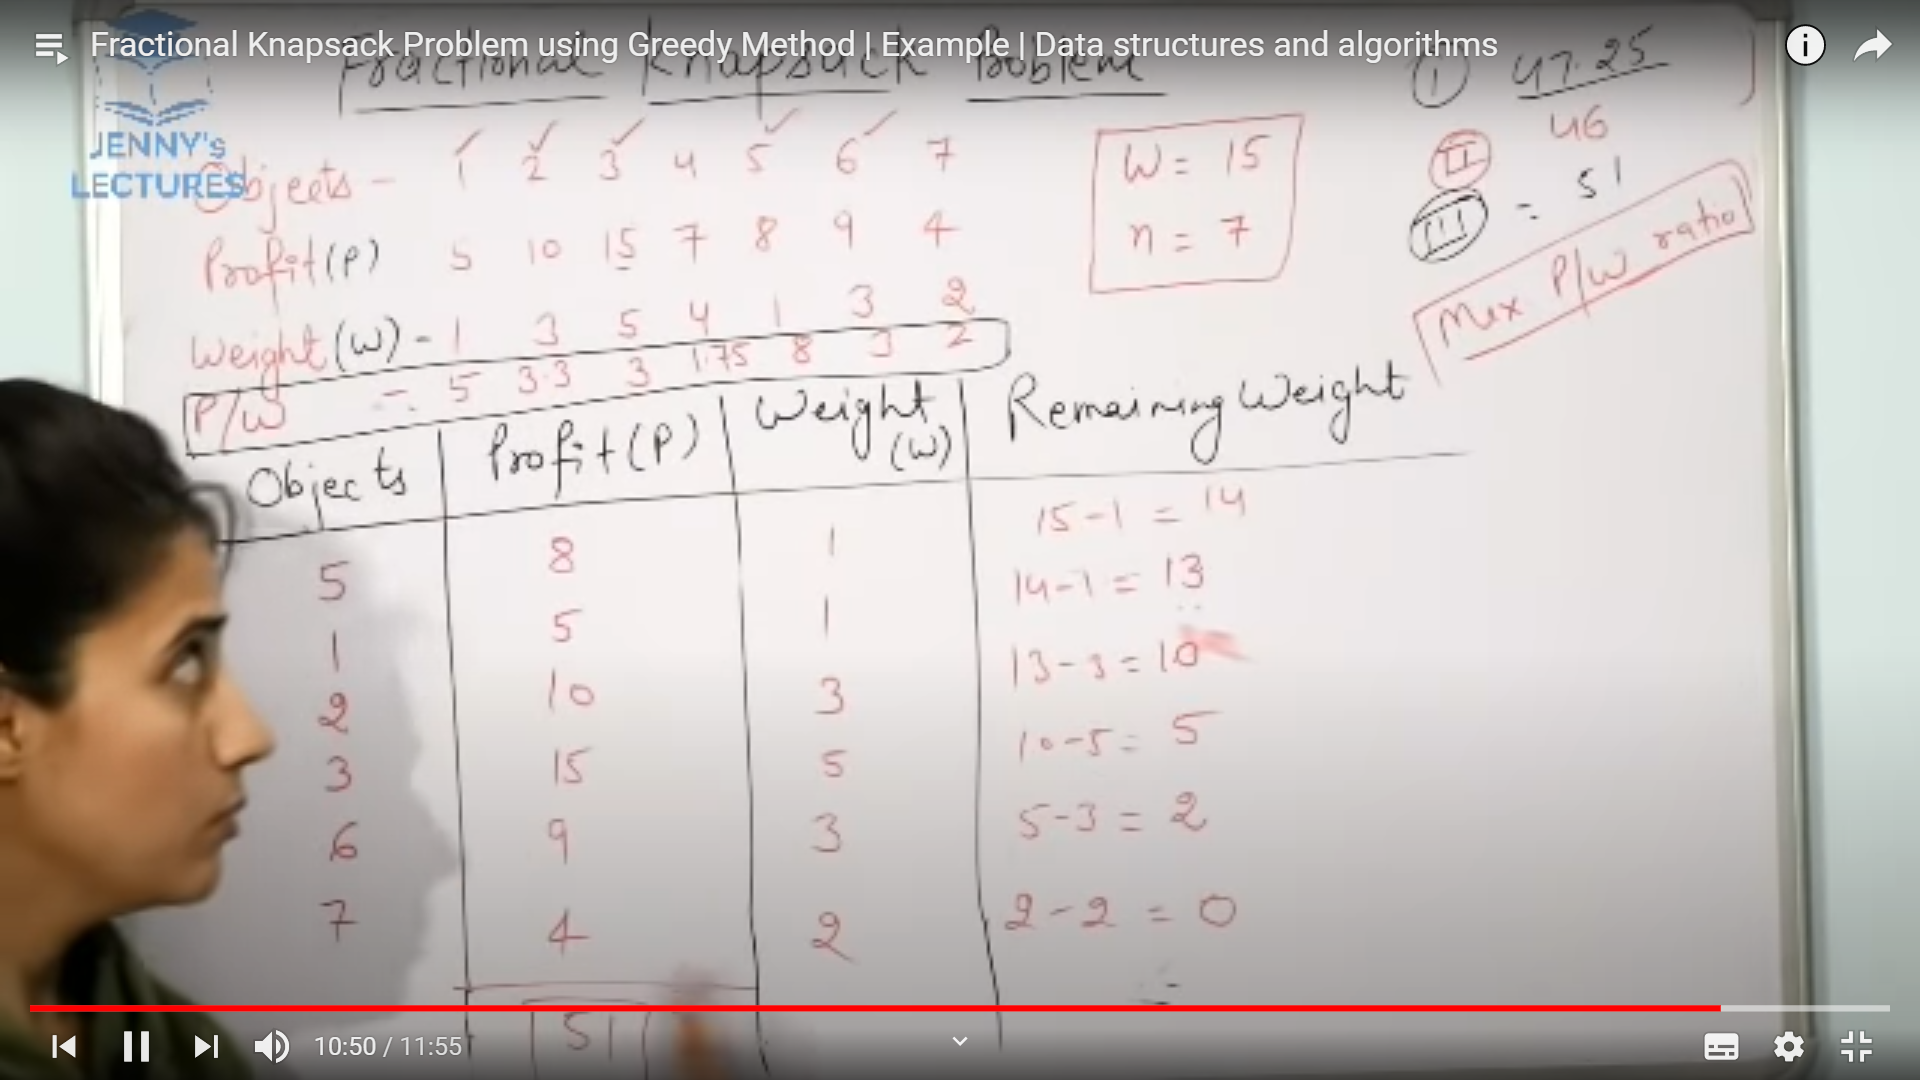 Fractional Knapsack Problem using Greedy Method | Example | Data structures and algorithms
Fractional Knapsack Problem
JENNY's
LECTURES
Objects - 1 2 3 4 5 6 7
Profit (P) 5 10 15 7 8 9 4
Weight (W) - 1 3 5 4 1 3 2
P/W 5 3.3 3 1.75 8 3 2
W = 15
n = 7
I 47.25
II 46
III = 51
Max P/W ratio
Objects Profit (P) Weight (W) Remaining Weight
5 8 1 15-1 = 14
1 5 1 14-1 = 13
2 10 3 13-3 = 10
3 15 5 10-5 = 5
6 9 3 5-3 = 2
7 4 2 2-2 = 0
51
10:50 / 11:55